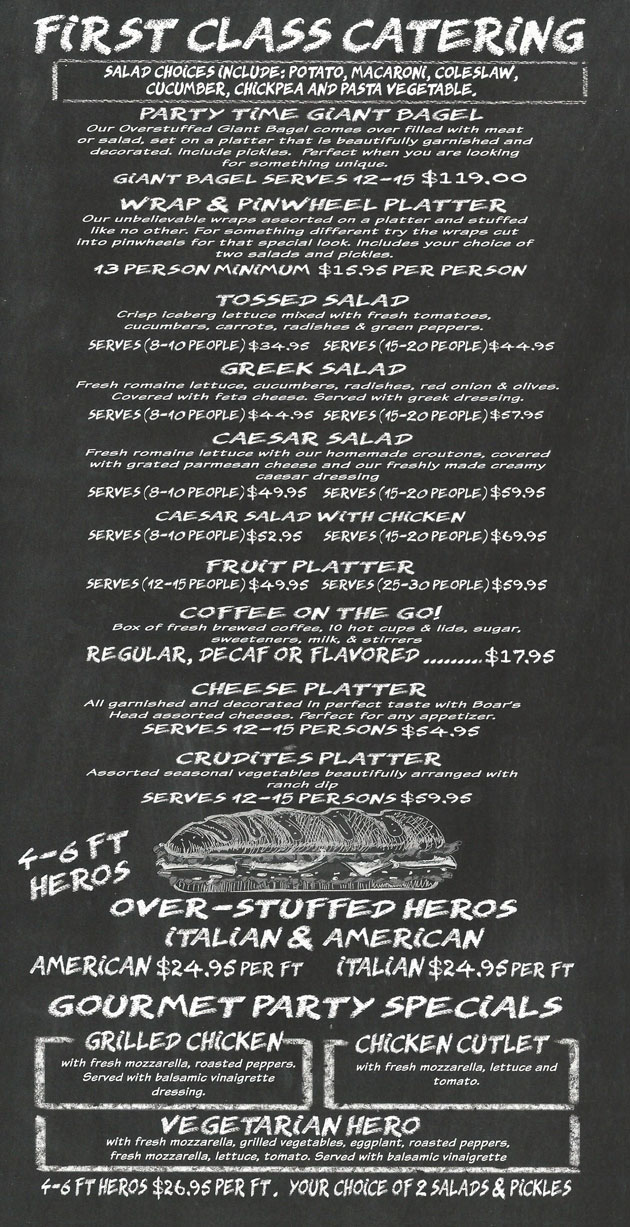 FIRST CLASS CATERING
SALAD CHOICES INCLUDE: POTATO, MACARONI, COLESLAW,
CUCUMBER, CHICKPEA AND PASTA VEGETABLE.
PARTY TIME GIANT BAGEL
Our Overstuffed Giant Bagel comes over filled with meat
or salad, set on a platter that is beautifully garnished and
decorated. Include pickles. Perfect when you are looking
for something unique.
GIANT BAGEL SERVES 12-15 $119.00
WRAP & PINWHEEL PLATTER
Our unbelievable wraps assorted on a platter and stuffed
like no other. For something different try the wraps cut
into pinwheels for that special look. Includes your choice of
two salads and pickles.
13 PERSON MINIMUM $15.95 PER PERSON
TOSSED SALAD
Crisp iceberg lettuce mixed with fresh tomatoes,
cucumbers, carrots, radishes & green peppers.
SERVES (8-10 PEOPLE) $34.95 SERVES (15-20 PEOPLE) $44.95
GREEK SALAD
Fresh romaine lettuce, cucumbers, radishes, red onion & olives.
Covered with feta cheese. Served with greek dressing.
SERVES (8-10 PEOPLE) $44.95 SERVES (15-20 PEOPLE) $57.95
CAESAR SALAD
Fresh romaine lettuce with our homemade croutons, covered
with grated parmesan cheese and our freshly made creamy
caesar dressing
SERVES (8-10 PEOPLE) $49.95 SERVES (15-20 PEOPLE) $59.95
CAESAR SALAD WITH CHICKEN
SERVES (8-10 PEOPLE) $52.95 SERVES (15-20 PEOPLE) $69.95
FRUIT PLATTER
SERVES (12-15 PEOPLE) $49.95 SERVES (25-30 PEOPLE) $59.95
COFFEE ON THE GO!
Box of fresh brewed coffee, 10 hot cups & lids, sugar,
sweeteners, milk, & stirrers
REGULAR, DECAF OR FLAVORED ......... $17.95
CHEESE PLATTER
All garnished and decorated in perfect taste with Boar's
Head assorted cheeses. Perfect for any appetizer.
SERVES 12-15 PERSONS $54.95
CRUDITES PLATTER
Assorted seasonal vegetables beautifully arranged with
ranch dip
SERVES 12-15 PERSONS $59.95
4-6 FT
HEROS
OVER-STUFFED HEROS
ITALIAN & AMERICAN
AMERICAN $24.95 PER FT ITALIAN $24.95 PER FT
GOURMET PARTY SPECIALS
GRILLED CHICKEN
with fresh mozzarella, roasted peppers.
Served with balsamic vinaigrette
dressing.
CHICKEN CUTLET
with fresh mozzarella, lettuce and
tomato.
VEGETARIAN HERO
with fresh mozzarella, grilled vegetables, eggplant, roasted peppers,
fresh mozzarella, lettuce, tomato. Served with balsamic vinaigrette
4-6 FT HEROS $26.95 PER FT. YOUR CHOICE OF 2 SALADS & PICKLES